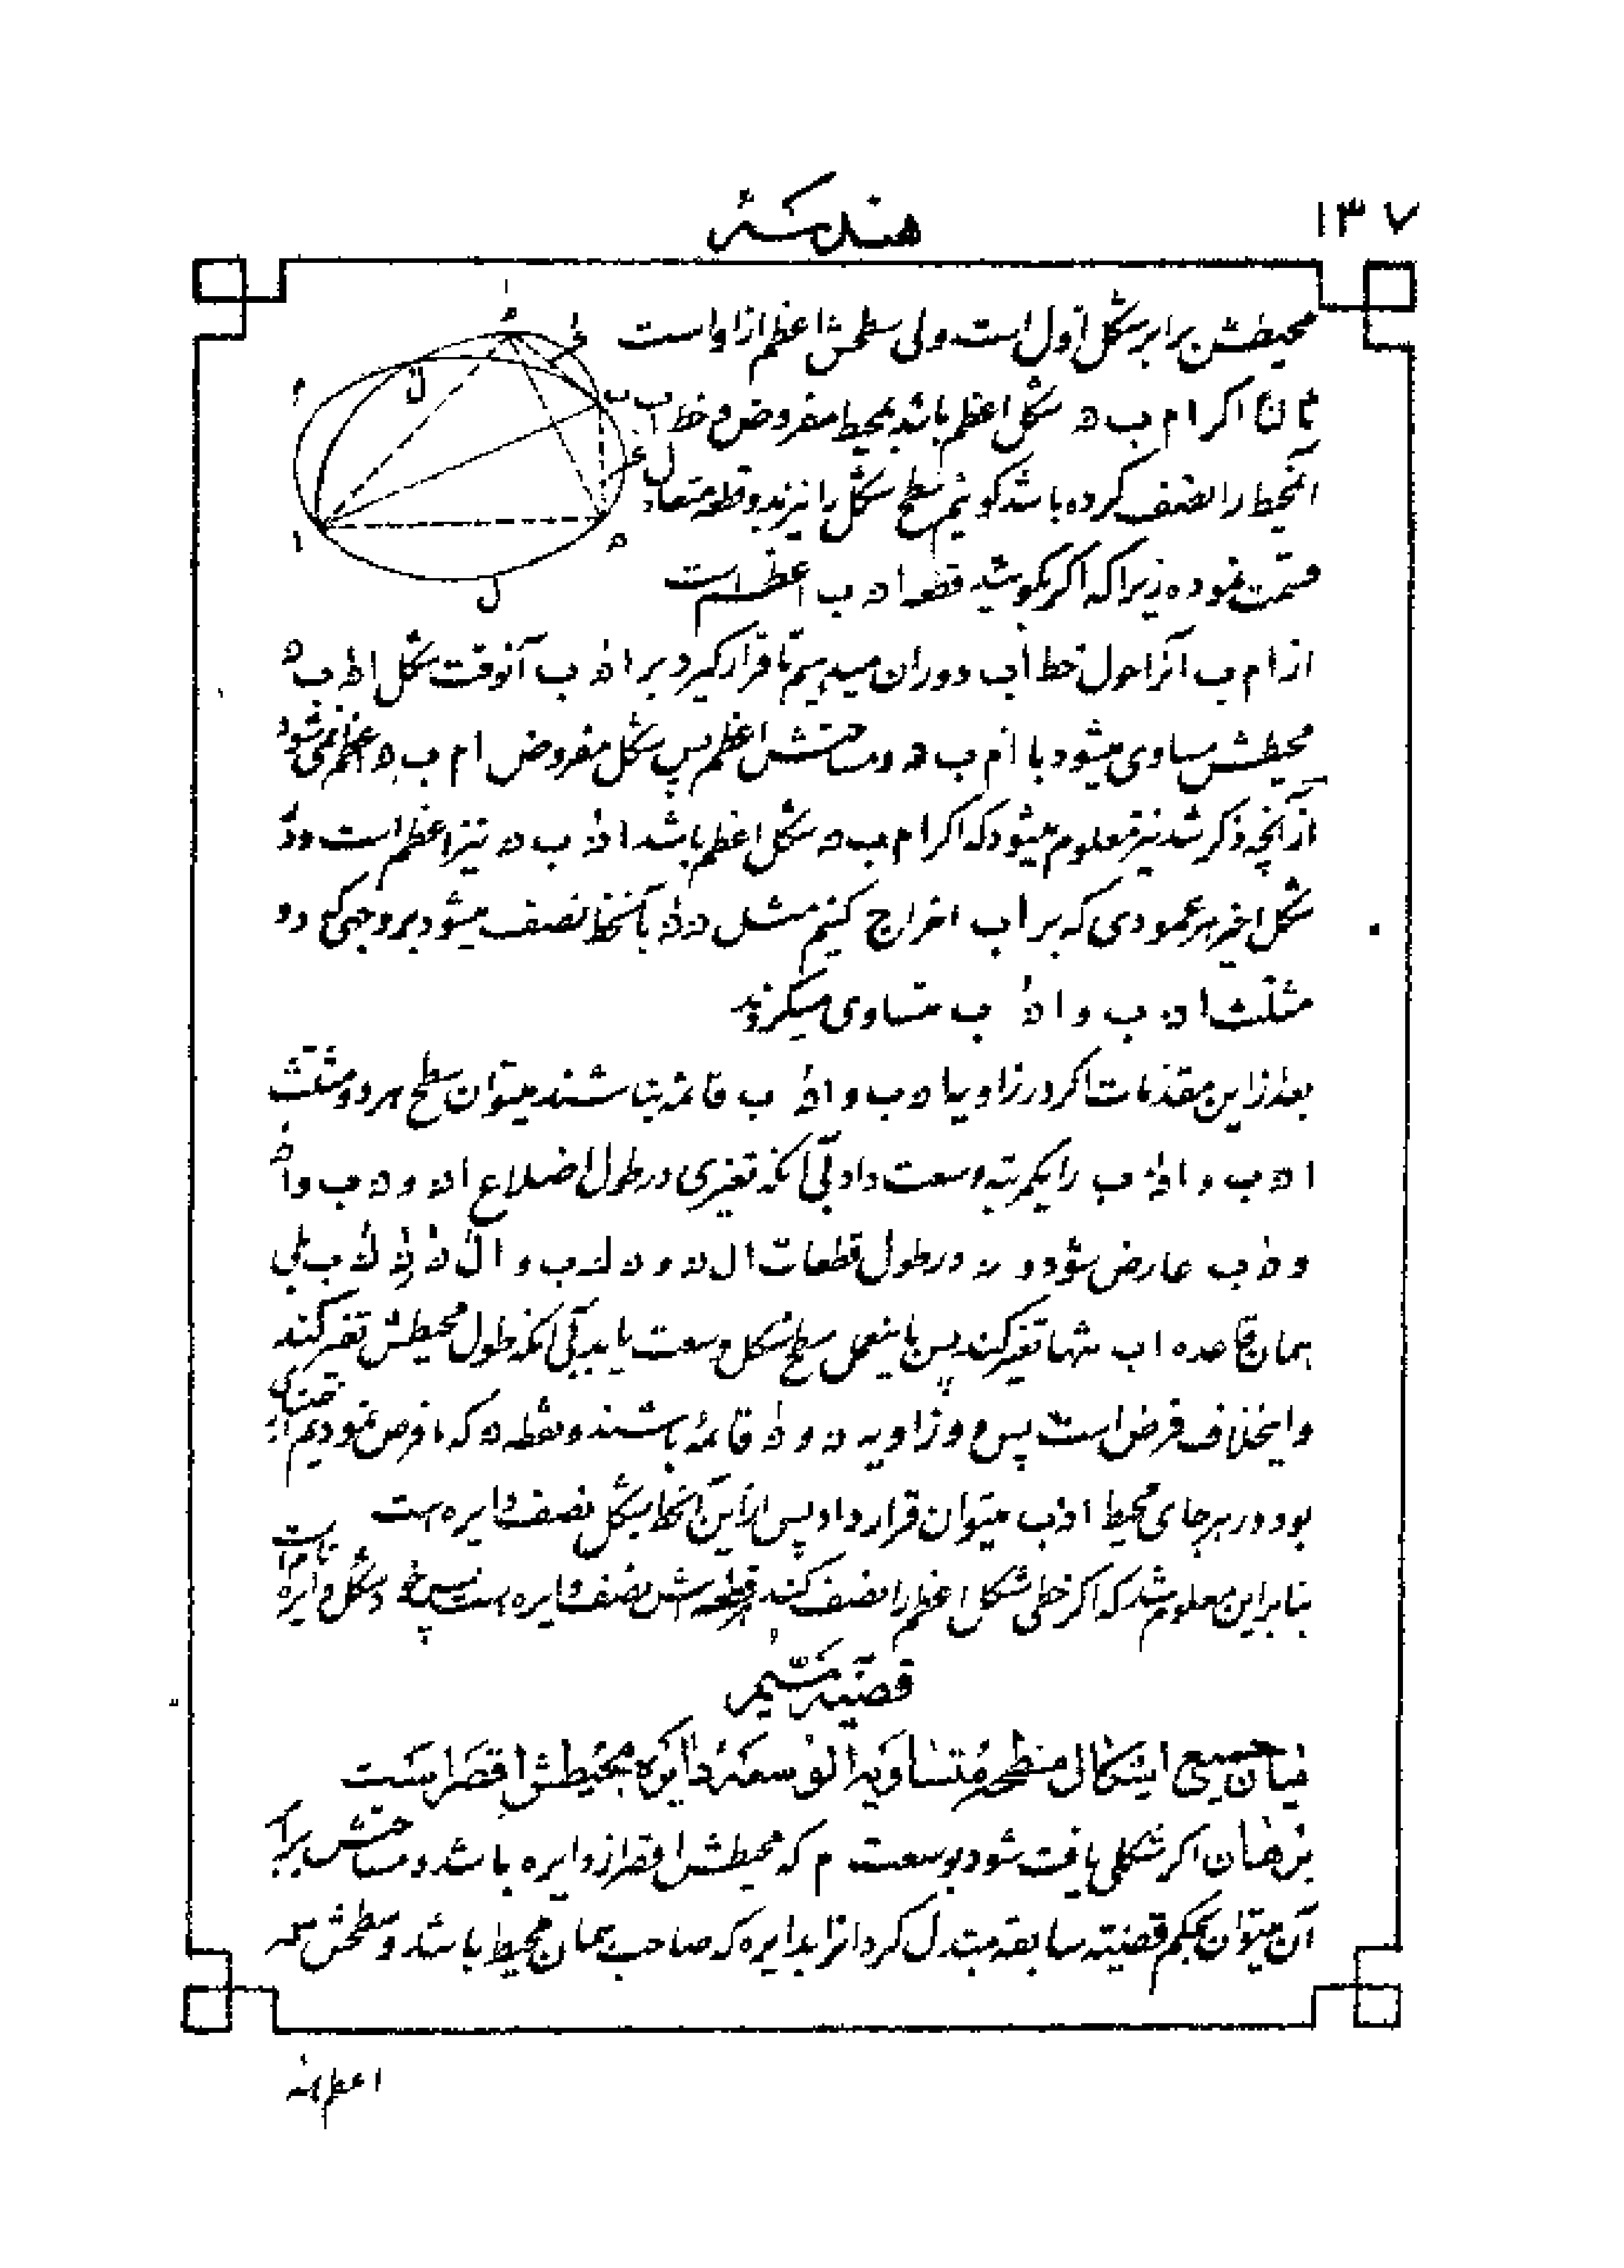 ۱۳۷
هندسه
محیطش برابر شکل اول است ولی سطحش اعظم از او است
ثانیا اکر ا م ب ه شکل اعظم باشد بمحیط مفروض و خط اب
آنمحیط را نصف کرده باشد کوئیم سطح شکل را نیز بدو قطعه متعادل
قسمت نموده زیرا که اکر بکوئید قطعه ا ه ب اعظم است
از ا م ب آنرا حول خط اب دوران میدهیم تا قرار کیرد بر ا هَ ب آنوقت شکل ا هَ ب ه
محیطش مساوی میشود با ا م ب ه ومساحتش اعظم پس شکل مفروض ا م ب ه اعظم نمی‌شود
از آنچه ذکر شد نیز معلوم میشود که اکر ا م ب ه شکل اعظم باشد ا هَ ب ه نیز اعظم است ودر
شکل اخیر هر عمودی که بر اب اخراج کنیم مثل ه هَ بآنخط نصف میشود بر وجهی که دو
مثلث ا ه ب و ا هَ ب متساوی میکردند
بعد از این مقدمات اکر در زاویه ا ه ب و ا هَ ب قائمه نباشند میتوان سطح هر دو مثلث
ا ه ب و ا هَ ب را یکمرتبه وسعت داد بی آنکه تغییری در طول اضلاع ا ه و ه ب و ا هَ
و هَ ب عارض شود و نه در طول قطعات ا ل ه و ه ک ب و ا لَ هَ هَ کَ ب بلی
همان قاعده اب تنها تغییر کند پس باینعمل سطح شکل وسعت یابد بی آنکه طول محیطش تغیر کند
واینخلاف فرض است پس دو زاویه ه و هَ قائمه باشند ونقطه ه که ما فرض نمودیم
بود در هر جای محیط ا ه ب میتوان قرار داد پس شکل نصف دایره است
بنابراین معلوم شد که اکر خطی شکل اعظم را نصف کند قطعه‌اش نصف دایره است پس خود شکل دایره
قضیه
میان جمیع اشکال منطحه متساویة الوسعه دایره محیطش اقصر است
برهان اکر شکلی یافت شود بوسعت م که محیطش اقصر از دایره باشد ومساحتش برابر
آن میتوان بحکم قضیه سابقه مبدل کرد انرا بدایره که صاحب همان محیط باشد وسطحش
اعظم